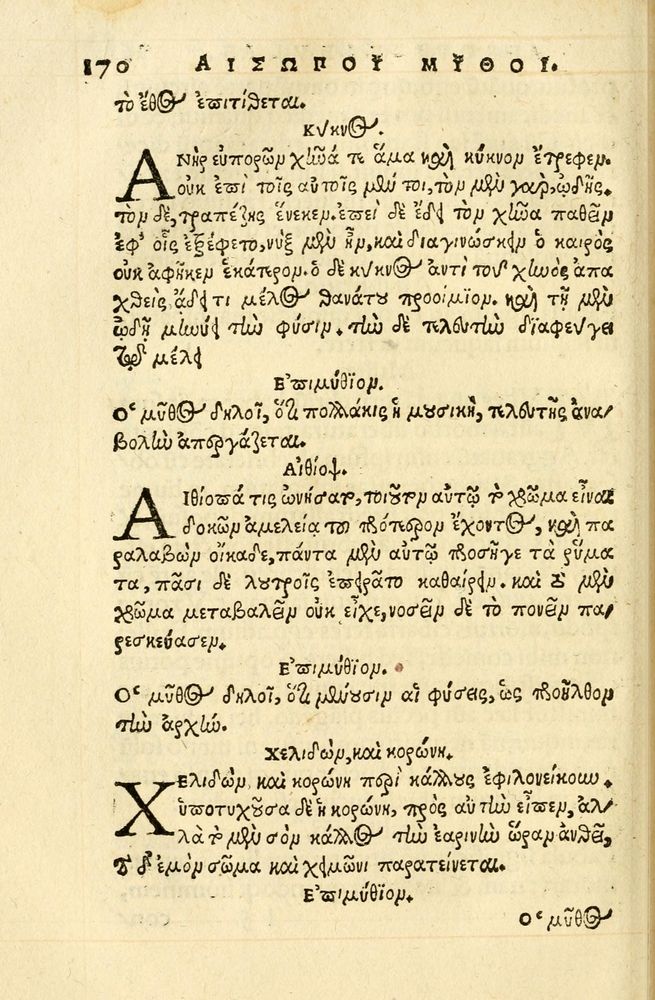 170 ΑΙΣΩΠΟΥ ΜΥΘΟΙ.
τὸ ἔθος ἐπιτίθεται.
Κύκνος.
ΑΝὴρ εὐπορῶν χῆνά τε ἅμα καὶ κύκνον ἔτρεφεν.
οὐκ ἐπὶ τοῖς αὐτοῖς μέν τοι, τὸν μὲν γὰρ, ᾠδῆς.
τὸν δὲ, τραπέζης ἕνεκεν. ἐπεὶ δὲ ἔδει τὸν χῆνα παθεῖν
ἐφ' οἷς ἐξέφετο, νὺξ μὲν ἦν, καὶ διαγινώσκειν ὁ καιρὸς
οὐκ ἀφῆκεν ἑκάτερον. ὁ δὲ κύκνος ἀντὶ τοῦ χηνὸς ἀπα
χθεὶς, ᾄδει τι μέλος θανάτου προοίμιον. καὶ τῇ μὲν
ᾠδῇ μηνύει τὴν φύσιν. τὴν δὲ τελευτὴν διαφεύγει
τῷ μέλει
Ἐπιμύθιον.
Ὁ μῦθος δηλοῖ, ὅτι πολλάκις ἡ μουσικὴ, τελευτῆς ἀνα/
βολὴν ἀπεργάζεται.
Αἰθίοψ.
ΑΙθίοπά τις ὠνήσατο, τοιοῦτον αὐτῷ τὸ χρῶμα εἶναι
δοκῶν ἀμελείᾳ τοῦ πρότερον ἔχοντος, καὶ πα
ραλαβὼν οἴκαδε, πάντα μὲν αὐτῷ προσῆγε τὰ ῥύμα
τα, πᾶσι δὲ λουτροῖς ἐπειρᾶτο καθαίρειν. καὶ τὸ μὲν
χρῶμα μεταβαλεῖν οὐκ εἶχε, νοσεῖν δὲ τὸ πονεῖν πα/
ρεσκεύασεν.
Ἐπιμύθιον.
Ὁ μῦθος δηλοῖ, ὅτι μένουσιν αἱ φύσεις, ὡς προῆλθον
τὴν ἀρχήν.
Χελιδὼν, καὶ κορώνη.
ΧΕλιδὼν καὶ κορώνη περὶ κάλλους ἐφιλονείκουν.
ὑποτυχοῦσα δὲ ἡ κορώνη, πρὸς αὐτὴν εἶπεν, ἀλ/
λὰ τὸ μὲν σὸν κάλλος τὴν ἐαρινὴν ὥραν ἀνθεῖ,
τὸ δ' ἐμὸν σῶμα καὶ χειμῶνι παρατείνεται.
Ἐπιμύθιον.
Ὁ μῦθος